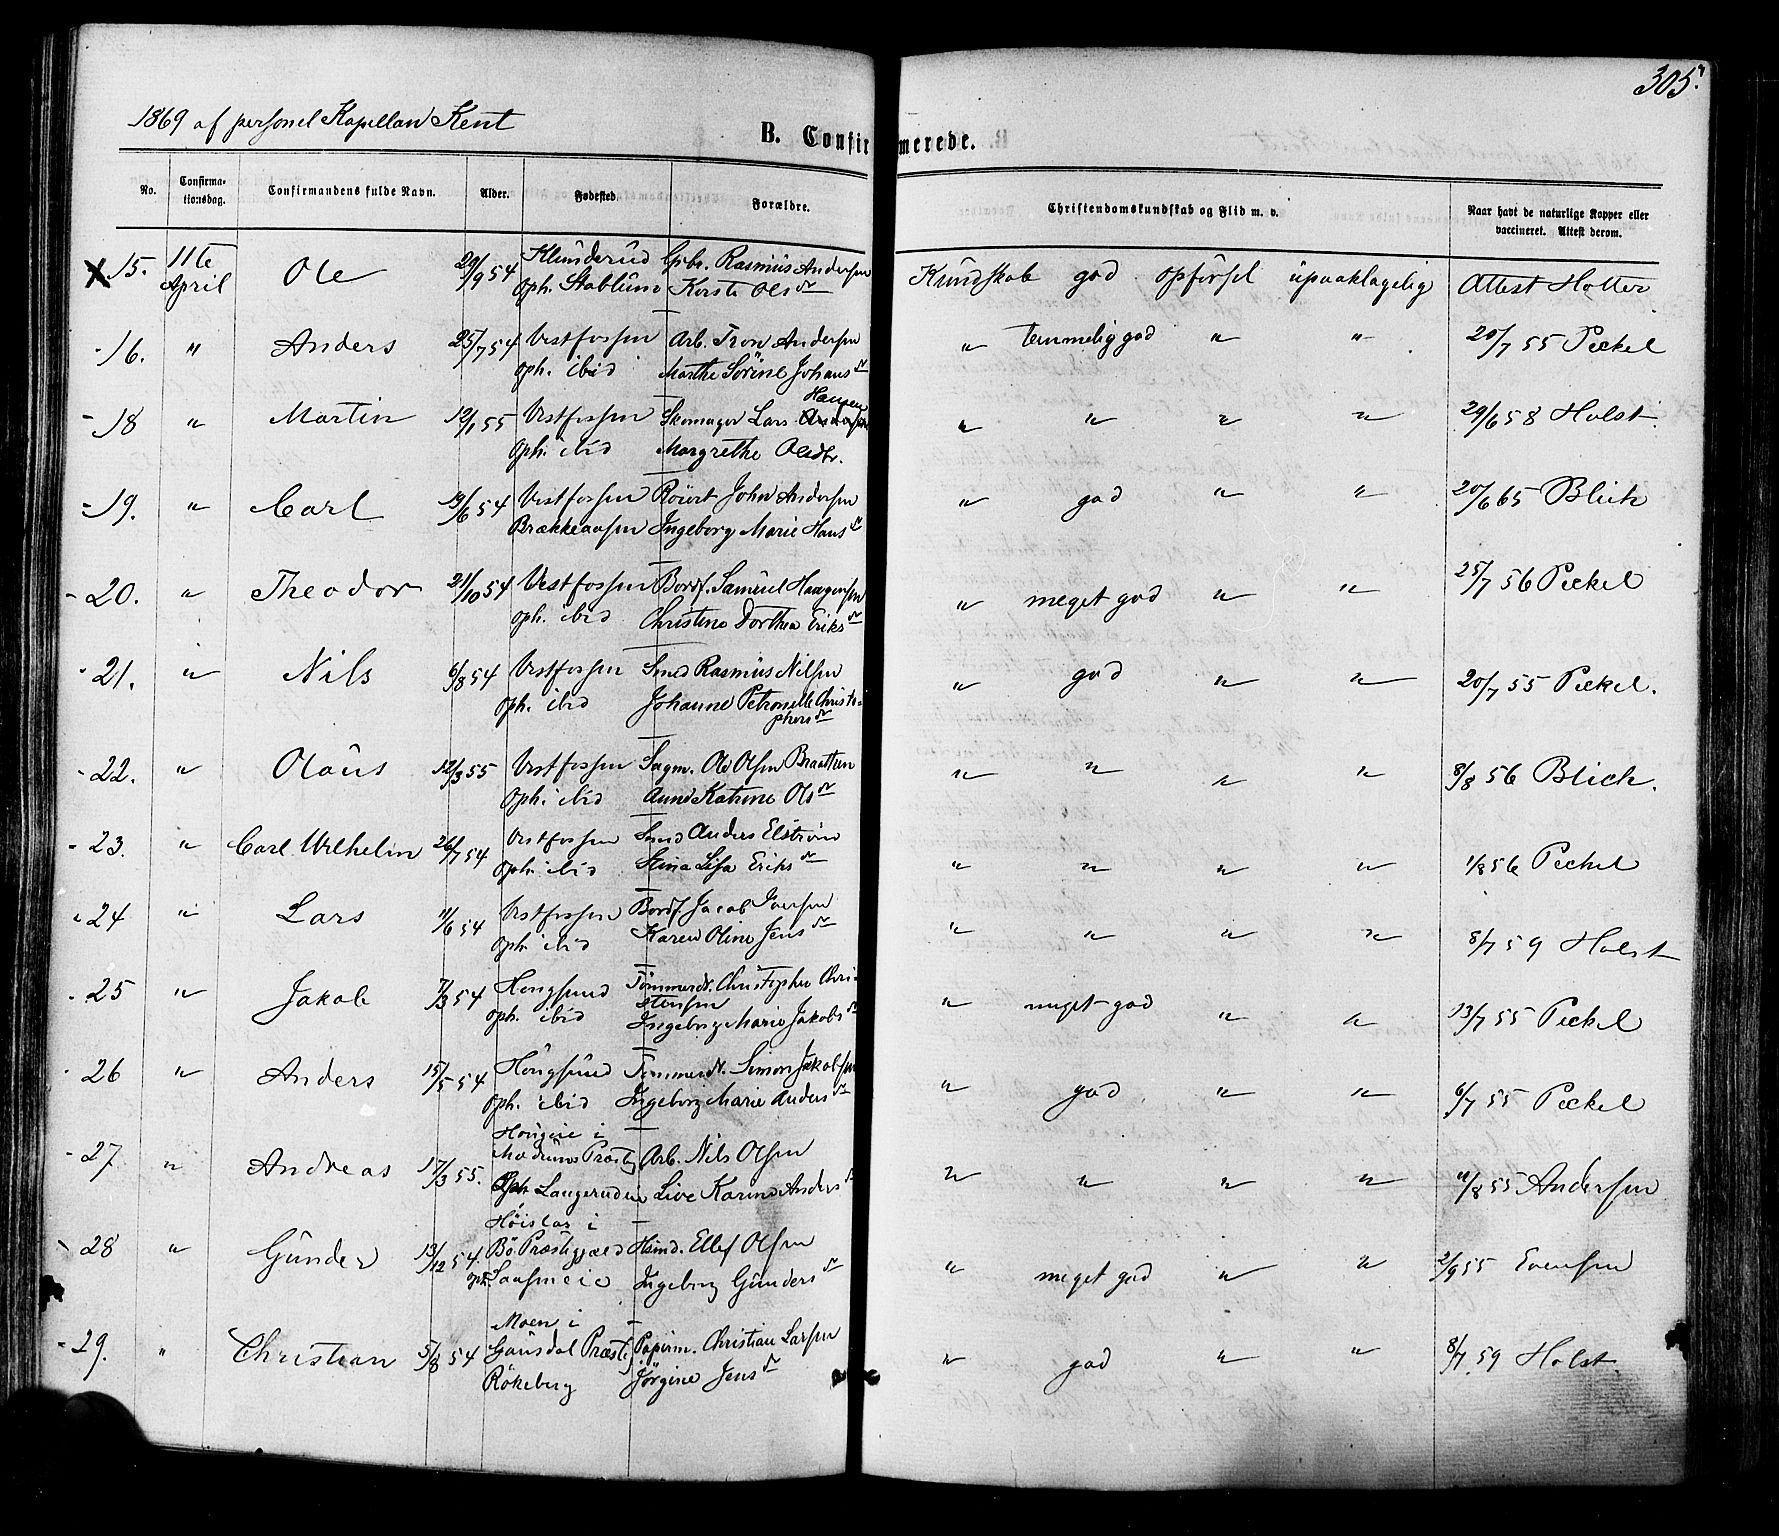 305.
1869 af personel Kapellan Kent
B. Confirmerede.
No. Confirmationsdag. Confirmandens fulde Navn. Alder. Fødested. Forældre. Christendomskundskab og Flid m. v. Naar havt de naturlige Kopper eller vaccineret. Attest derom.
15. 11te April Ole 29/9 54 Klunderud Gbr. Rasmus Andersen Kundskab god opførsel upaaklagelig Attest Hotter
oph. Stablum Kersti Olsdr
16. " Anders 25/7 54 Vestfossen Arb. Tron Andersen " temmelig god " " 20/7 55 Peckel
oph. ibid Marthe Sørine Johansdr
18 " Martin 12/1 55 Vestfossen Skomager Lars Hansen " " " " 29/6 58 Holst.
oph. ibid Margrethe Olsdtr.
19. " Carl 13/6 54 Vestfossen John Andersen " god " " 20/6 65 Blich
Brækkeaasen Ingeborg Marie Hansdr
20. " Theodor 21/10 54 Vestfossen Bordf. Samuel Haagensen " meget god " " 25/7 56 Peckel
oph. ibid Christine Dorthea Eriksdr
21. " Nils 6/8 54 Vestfossen Smed Rasmus Nilsen " god " " 20/7 55 Peckel.
oph. ibid Johanne Petronelle Christophersdr
22. " Olaus 12/3 55 Vestfossen Sagm. Ole Olsen Braatten " " " " 8/8 56 Blich.
oph. ibid Anne Katrine Olsdr
23. " Carl Wilhelm 26/7 54 Vestfossen Smed Anders Elstrøm " " " " 1/8 56 Peckel
oph. ibid Stina Lisa Eriksdr
24 " Lars 11/6 54 Vestfossen Bordf. Jacob Iversen " " " " 8/7 59 Holst
oph. ibid Karen Oline Jensdr
25 " Jakob 7/3 54 Hougsund Tømmerdr. Christopher Christensen " meget god " " 13/7 55 Peckel
oph. ibid Ingeborg Marie Jakobsdr
26 " Anders 15/5 54 Hougsund Tømmerdr. Simon Jakobsen " god " " 6/7 55 Peckel
oph. ibid Ingeborg Marie Andersdr
27 " Andreas 17/3 55. i Modums Præstg. Arb. Nils Olsen " " " " 11/8 55 Andersen
Oph. Langerudeie Live Karine Andersdr
28 " Gunder 13/12 54 i Bø Præstegjæld Hsmd. Ellef Olsen " meget god " " 2/9 55 Evensen
oph. Ingeborg Gundersdr
29. " Christian 5/8 54 Moen i Gausdal Præstg. Papirm. Christian Larsen " god " " 8/7 59 Holst.
Røkeberg Jørgine Jensdr